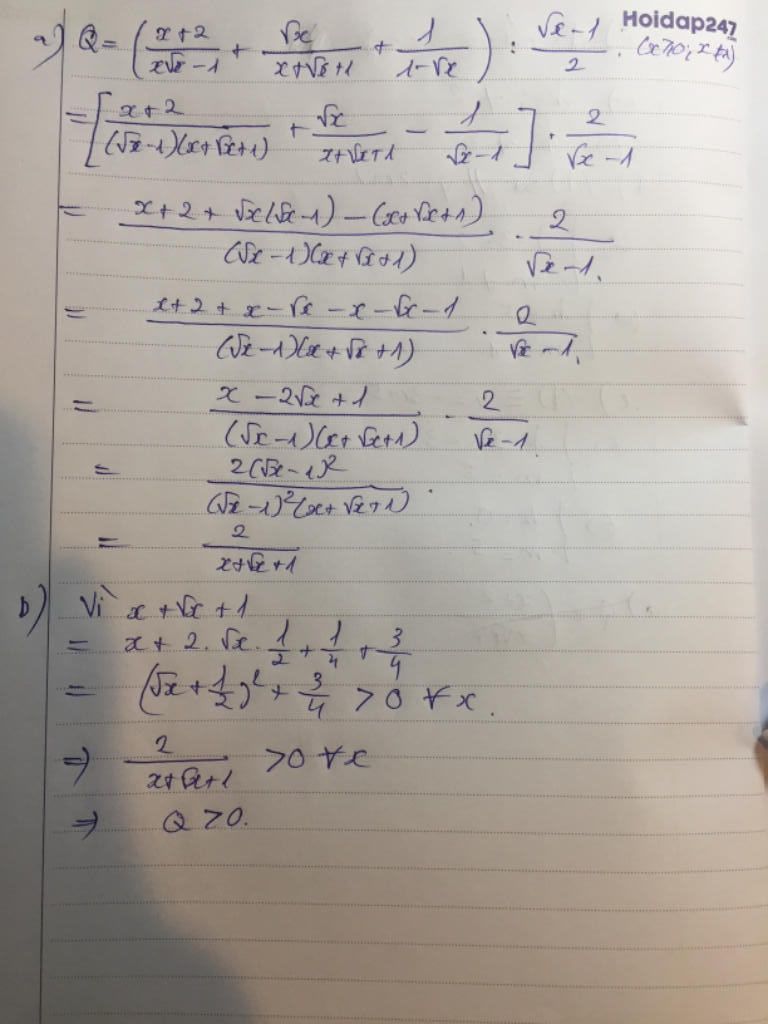 Hoidap247
a) Q = ( (x+2)/(x√x − 1) + √x/(x+√x+1) + 1/(1−√x) ) : (√x−1)/2 . (x≥0; x≠1)
= [ (x+2)/((√x−1)(x+√x+1)) + √x/(x+√x+1) − 1/(√x−1) ] . 2/(√x−1)
= (x+2 + √x(√x−1) − (x+√x+1))/((√x−1)(x+√x+1)) . 2/(√x−1).
= (x+2 + x − √x − x − √x − 1)/((√x−1)(x+√x+1)) . 2/(√x−1).
= (x − 2√x + 1)/((√x−1)(x+√x+1)) . 2/(√x−1).
= 2(√x−1)²/((√x−1)²(x+√x+1)).
= 2/(x+√x+1)
b) Vì x+√x+1
= x + 2.√x.1/2 + 1/4 + 3/4
= (√x + 1/2)² + 3/4 > 0 ∀x.
⇒ 2/(x+√x+1) > 0 ∀x
⇒ Q > 0.